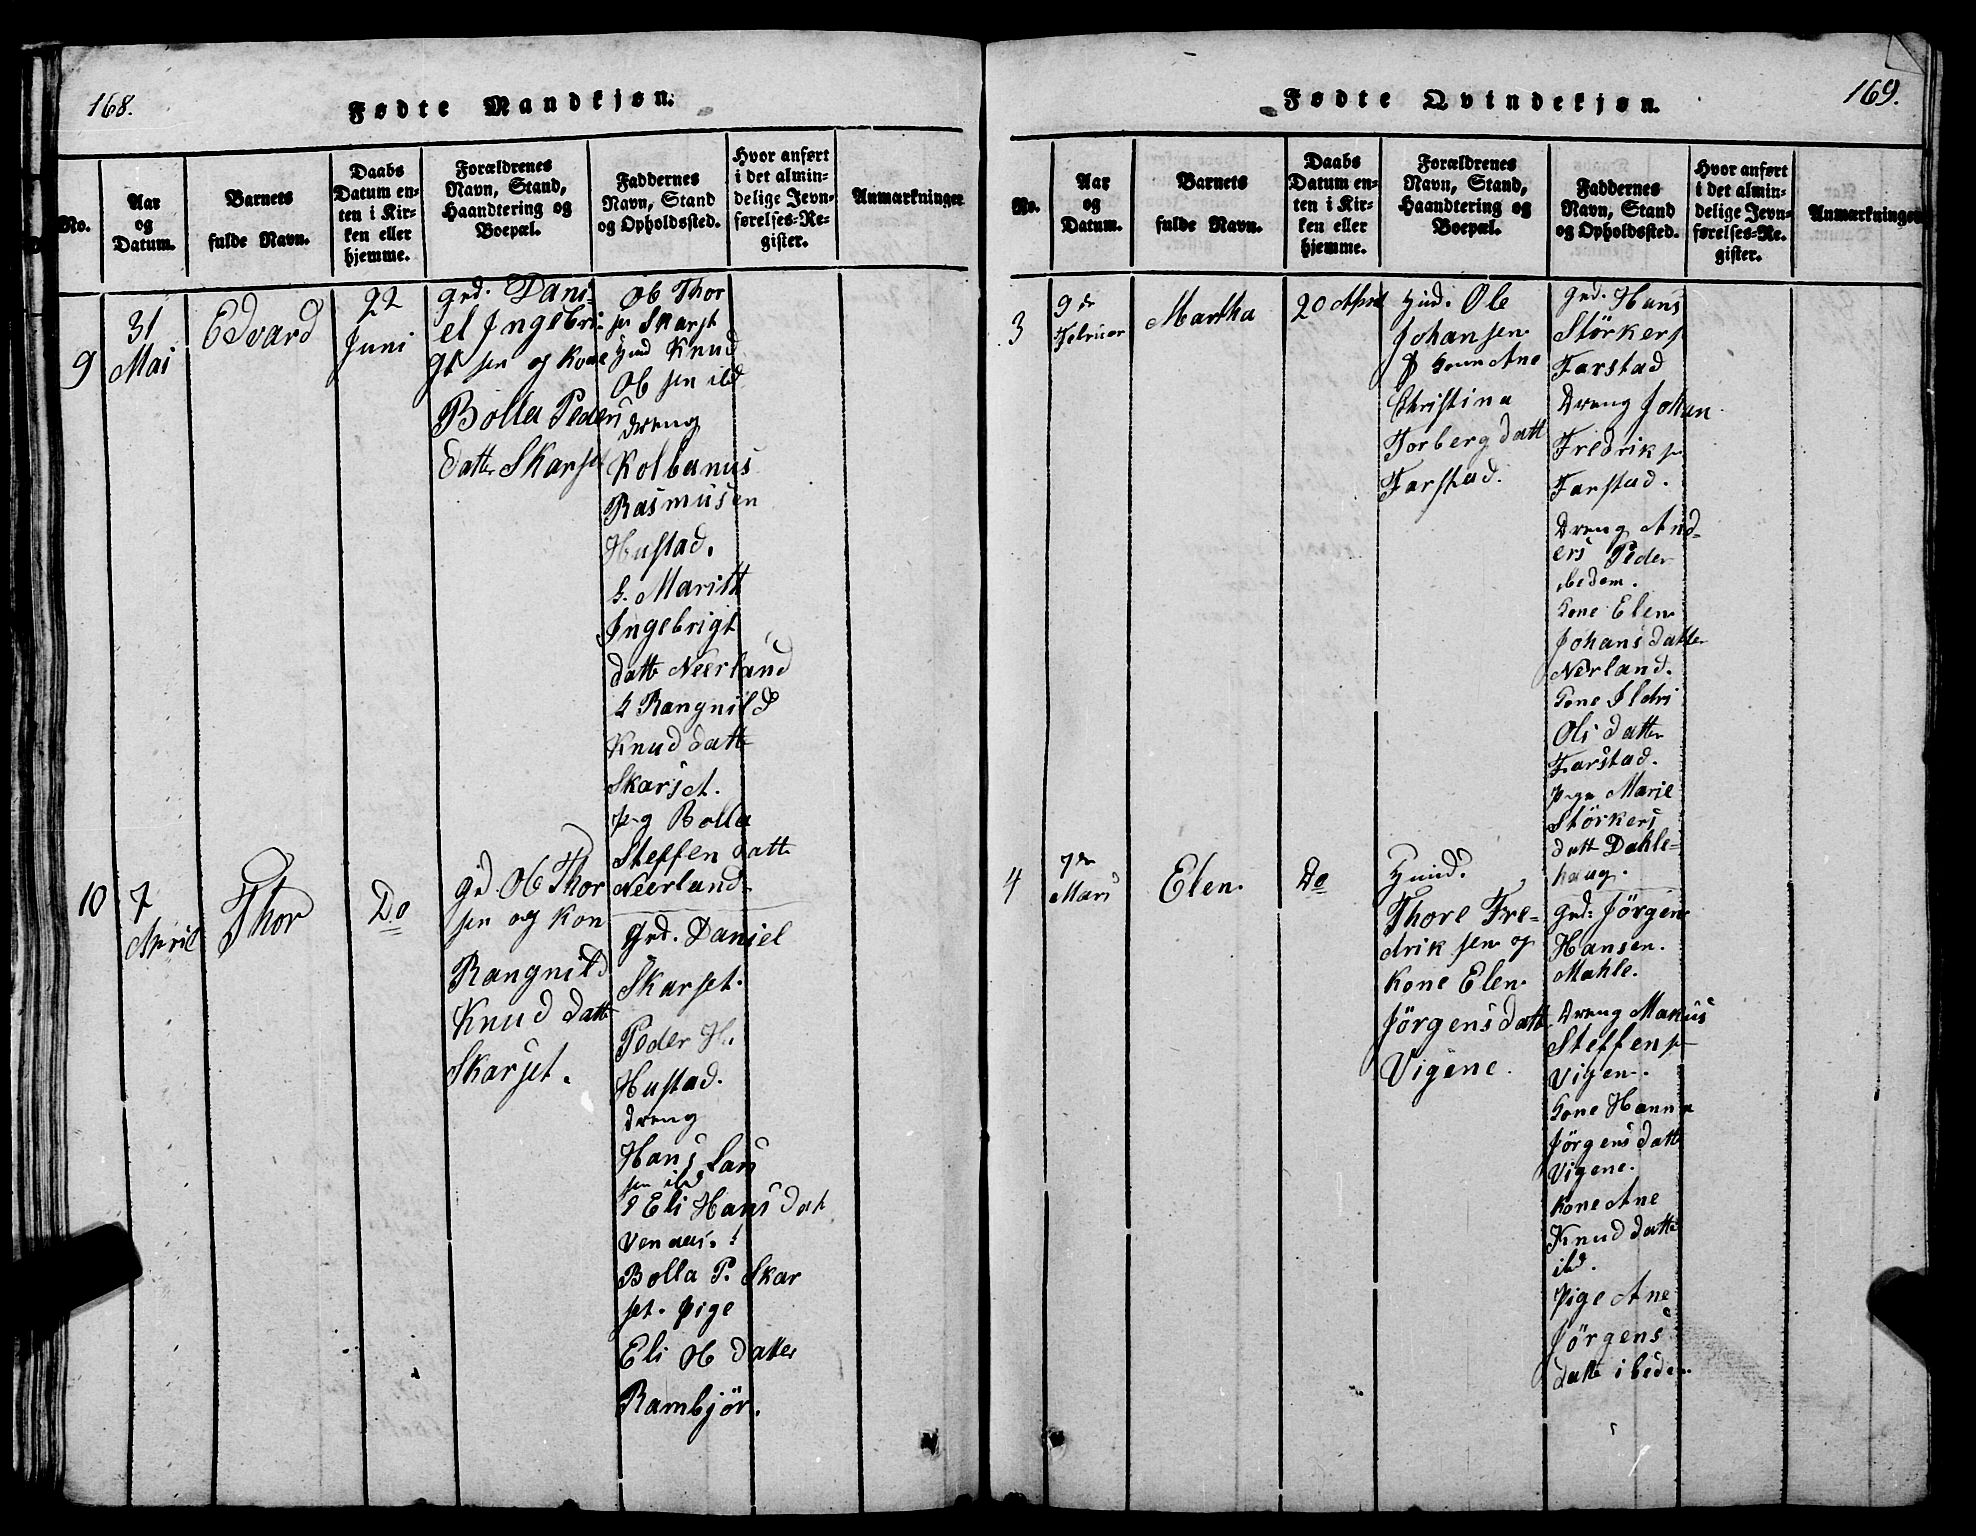 168.
Fødte Mandkjøn.
No.
Aar
og
Datum.
Barnets
fulde Navn.
Daabs
Datum en-
ten i Kir-
ken eller
hjemme.
Forældrenes
Navn, Stand,
Haandtering og
Boepæl.
Faddernes
Navn, Stand
og Opholdssted.
Hvor anført
i det almin-
delige Jevn-
førelses-Re-
gister.
Anmærkninger
9
31
Mai
Edvard
22
Juni
grd. Dani-
el Ingebri-
gt sen og Kone
Bolla Peders
datter Skarset
Ob Thor
sen Skarset
Knud
Ob sen ibd
dreng
Kolbanus
Rasmusen
Hustad.
G. Maritt
Ingebrigt
datt Neerland
G Rangnild
Knud datt
Skarset.
Bolla
Steffen datt
Neerland.
10
7
April
Thor
Do
grd. Ob Thor
sen og Kon
Rangnild
Knud datt
Skarset.
Grd. Daniel
Skarset.
Peder H.
Hustad.
dreng
Hans Lars
sen ibd
Eli Hans dat
Venaas.
Bolla P. Skar
set. pige
Eli Ob datter
Rambjör.
169.
Fødte Qvindekjøn.
No.
Aar
og
Datum.
Barnets
fulde Navn.
Daabs
Datum en-
ten i Kir-
ken eller
hjemme.
Forældrenes
Navn, Stand,
Haandtering og
Boepæl.
Faddernes
Navn, Stand
og Opholdssted.
Hvor anført
i det almin-
delige Jevn-
førelses-Re-
gister.
Anmærkninger
3
9de
Februar
Martha
20 April
Huusd. Ole
Johansen
Kone Ane
Christina
Torberg datt
Farstad.
Grd. Hans
Störkers
Farstad
Dreng Johan
Fredrik s
Farstad.
Dreng And-
ers Peder
ibedem.
Kone Elen
Johans datter
Nerland.
Kone Ildri
Ols datter
Farstad.
Marie
Störkers
datt Dahle-
haug.
4
7de
Mars
Elen.
Do
Huusd.
Thore Fre-
drik sen og
Kone Elen
Jörgens datt
Vigene.
Grd: Jörgen
Hansen.
Mahle.
Dreng Makus
Steffen s
Vigen.
Kone Hanna
Jörgens datt
Vigene.
Kone Ane
Knud datt
ibd.
Pige Ane
Jörgens
datt ibedem